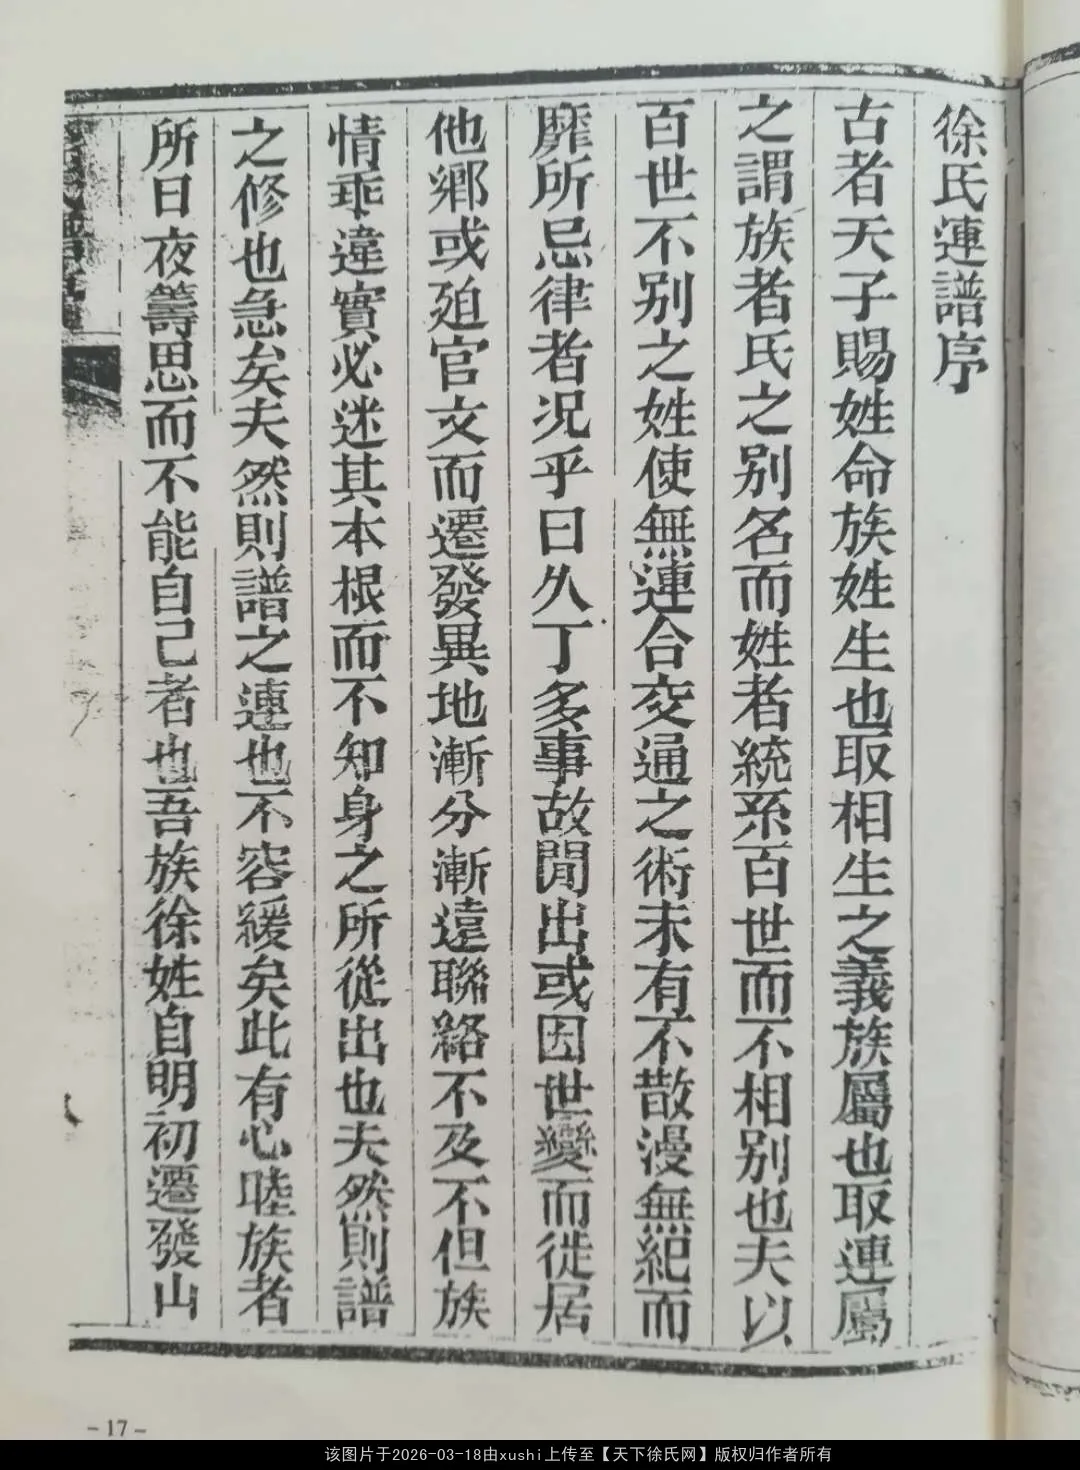 徐氏連譜序
古者天子賜姓命族姓生也取相生之義族屬也取連屬
之謂族者氏之别名而姓者統系百世而不相别也夫以
百世不别之姓使無連合交通之術未有不散漫無紀而
靡所忌律者况乎日久丁多事故閒出或因世變而徙居
他鄉或廹官文而遷發異地漸分漸遠聯絡不及不但族
情乖違實必迷其本根而不知身之所從出也夫然則譜
之修也急矣夫然則譜之連也不容緩矣此有心睦族者
所日夜籌思而不能自己者也吾族徐姓自明初遷發山
-17-
该图片于2026-03-18由xushi上传至【天下徐氏网】版权归作者所有